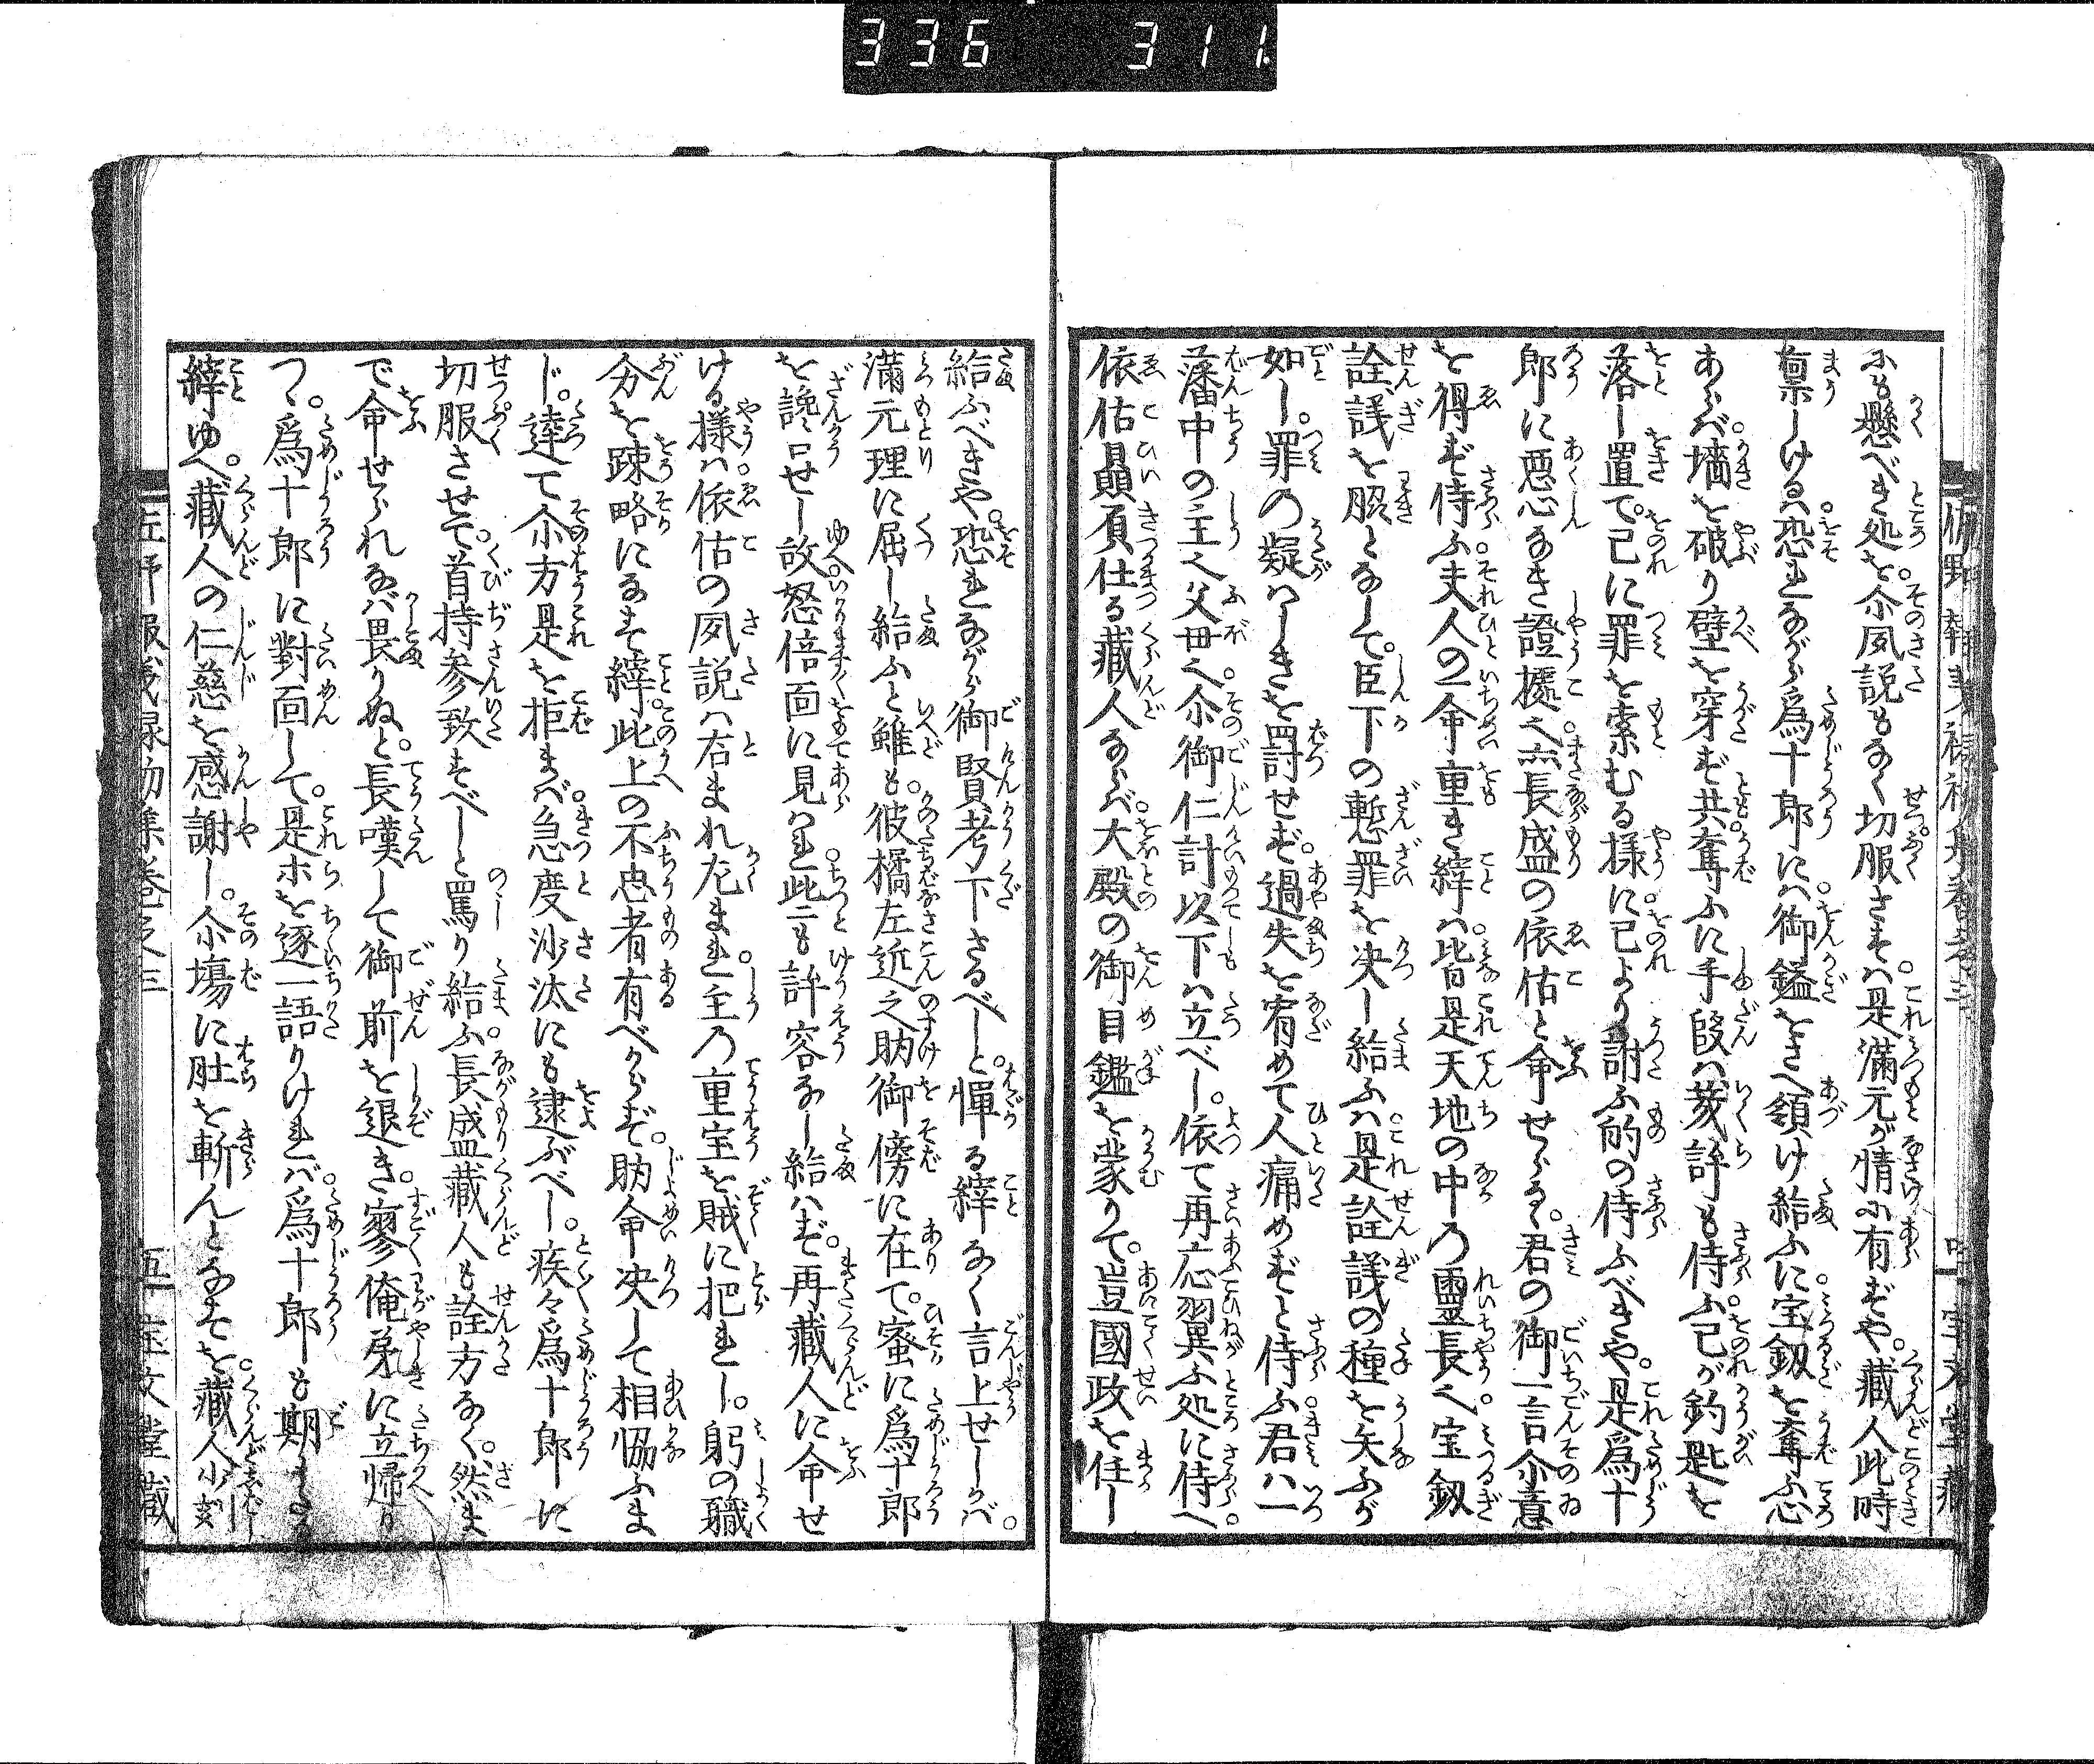 336 311
にも懸べき処を。尓夙説もなく切服さすは。是満元が情に有ずや。藏人此時
稟しけるは。恐れながら爲十郎には。御鎰をさへ領け給ふに。宝釼を奪ふ心
あらば。墻を破り壁を穿ず共。奪ふに手段は幾許も侍ふ。己が釣匙を
落し置て。己に罪を索むる様に。己より訴ふ的の侍ふべきや。是爲十
郎に悪心なき證據也。亦長盛の依怙と命せらる。君の御一言尓意
を得ず侍ふ。夫人の一命重き縡は。皆是天地の中の靈長也。宝釼
詮議を照となして。臣下の慙罪を决し給ふは。是詮議の種を矢ふが
如し。罪の疑はしきを罸せず。過失を宥めて人痛めずと侍ふ。君は一
藩中の主也父母也。尓御仁計以下は立べし。依て再応翌異ふ処に侍へ。
依怙贔屓仕る藏人ならば。大殿の御目鑑を蒙りて。豈國政を任し
給ふべきや。恐れながら御賢考下さるべしと。憚る縡なく言上せしかば。
満元理に屈し給ふと雖も。彼橘左近之助御傍に在て。蜜に爲十郎
を讒口せし故。怒倍面に見はれ此二も許容なし給はず。再藏人に命せ
ける様は。依怙の夙説は右まれ左まれ。主の重宝を賊に把れし。躬の職
分を踈略になす縡。此上の不忠者有べからず。助命决して相恊ふま
じ。達て尓方是を拒まば。急度沙汰にも逮ぶべし。疾々爲十郎に
切服させて。首持参致すべしと罵り給ふ。長盛藏人も詮方なく。然ま
で命せられなば畏りぬと。長嘆して御前を退き。寥々俺䑓に立帰り
つゝ。爲十郎に對面して。是ホを逐一語りければ。爲十郎も期したる
縡ゆへ。藏人の仁慈を感謝し。尓塲に肚を斬んとなすを。藏人少刻
巻之三
五 宝文堂藏